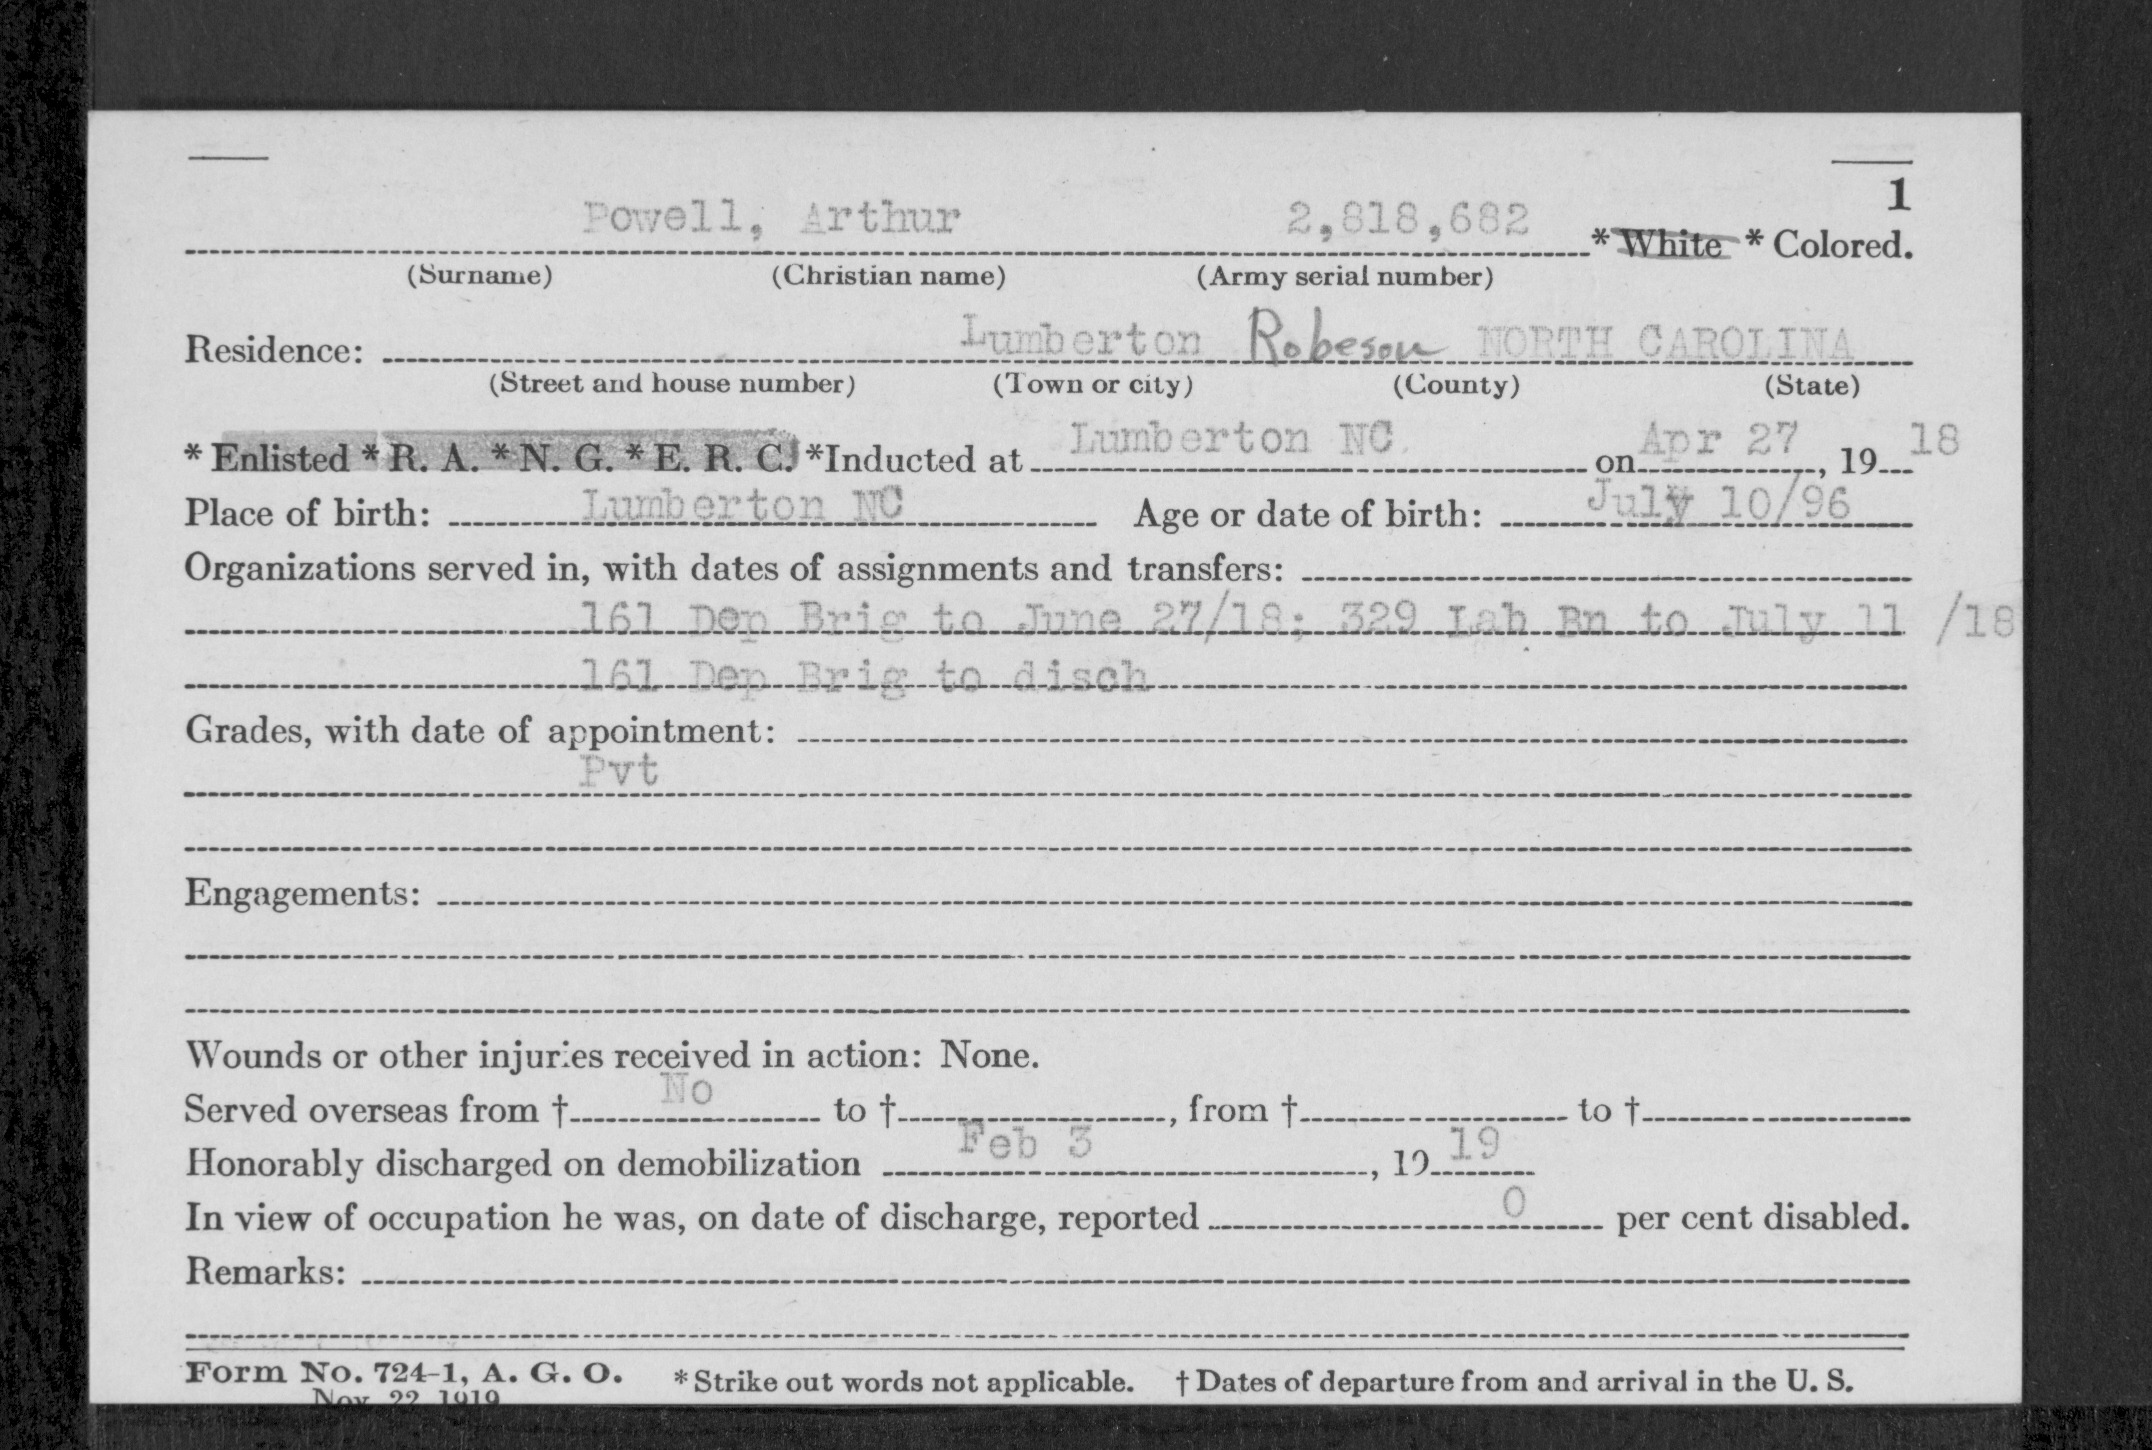 1
Powell, Arthur 2,818,682 * White * Colored.
(Surname) (Christian name) (Army serial number)
Residence: Lumberton Robeson NORTH CAROLINA
(Street and house number) (Town or city) (County) (State)
* Enlisted * R. A. * N. G. * E. R. C. *Inducted at Lumberton NC on Apr 27, 19 18
Place of birth: Lumberton NC Age or date of birth: July 10/96
Organizations served in, with dates of assignments and transfers:
161 Dep Brig to June 27/18; 329 Lab Bn to July 11 /18
161 Dep Brig to disch
Grades, with date of appointment:
Pvt
Engagements:
Wounds or other injuries received in action: None.
Served overseas from † No to †, from † to †
Honorably discharged on demobilization Feb 3, 19 19
In view of occupation he was, on date of discharge, reported 0 per cent disabled.
Remarks:
Form No. 724-1, A. G. O. * Strike out words not applicable. † Dates of departure from and arrival in the U. S.
Nov. 22, 1919